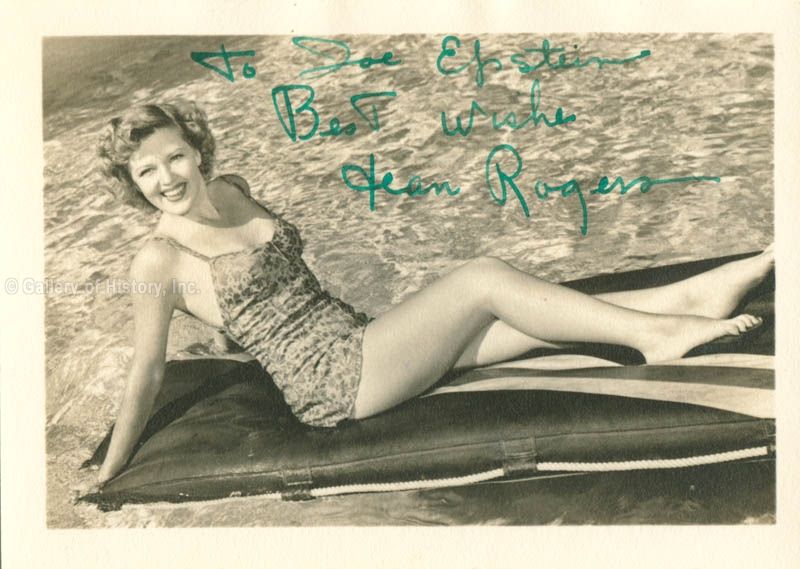 To Joe Epstein
Best Wishes
Jean Rogers
© Gallery of History, Inc.